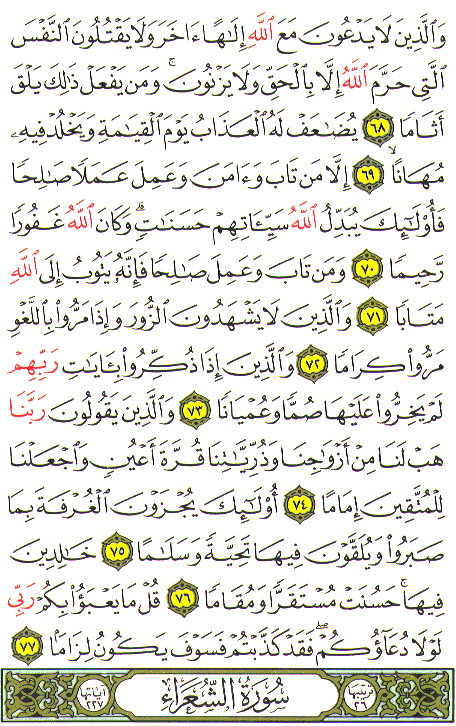 وَٱلَّذِينَ لَا يَدْعُونَ مَعَ ٱللَّهِ إِلَٰهًا ءَاخَرَ وَلَا يَقْتُلُونَ ٱلنَّفْسَ
ٱلَّتِي حَرَّمَ ٱللَّهُ إِلَّا بِٱلْحَقِّ وَلَا يَزْنُونَ ۚ وَمَن يَفْعَلْ ذَٰلِكَ يَلْقَ
أَثَامًا ٦٨ يُضَٰعَفْ لَهُ ٱلْعَذَابُ يَوْمَ ٱلْقِيَٰمَةِ وَيَخْلُدْ فِيهِۦ
مُهَانًا ٦٩ إِلَّا مَن تَابَ وَءَامَنَ وَعَمِلَ عَمَلًا صَٰلِحًا
فَأُو۟لَٰٓئِكَ يُبَدِّلُ ٱللَّهُ سَيِّـَٔاتِهِمْ حَسَنَٰتٍ ۗ وَكَانَ ٱللَّهُ غَفُورًا
رَّحِيمًا ٧٠ وَمَن تَابَ وَعَمِلَ صَٰلِحًا فَإِنَّهُۥ يَتُوبُ إِلَى ٱللَّهِ
مَتَابًا ٧١ وَٱلَّذِينَ لَا يَشْهَدُونَ ٱلزُّورَ وَإِذَا مَرُّوا۟ بِٱللَّغْوِ
مَرُّوا۟ كِرَامًا ٧٢ وَٱلَّذِينَ إِذَا ذُكِّرُوا۟ بِـَٔايَٰتِ رَبِّهِمْ
لَمْ يَخِرُّوا۟ عَلَيْهَا صُمًّا وَعُمْيَانًا ٧٣ وَٱلَّذِينَ يَقُولُونَ رَبَّنَا
هَبْ لَنَا مِنْ أَزْوَٰجِنَا وَذُرِّيَّٰتِنَا قُرَّةَ أَعْيُنٍ وَٱجْعَلْنَا
لِلْمُتَّقِينَ إِمَامًا ٧٤ أُو۟لَٰٓئِكَ يُجْزَوْنَ ٱلْغُرْفَةَ بِمَا
صَبَرُوا۟ وَيُلَقَّوْنَ فِيهَا تَحِيَّةً وَسَلَٰمًا ٧٥ خَٰلِدِينَ
فِيهَا ۚ حَسُنَتْ مُسْتَقَرًّا وَمُقَامًا ٧٦ قُلْ مَا يَعْبَؤُا۟ بِكُمْ رَبِّي
لَوْلَا دُعَآؤُكُمْ ۖ فَقَدْ كَذَّبْتُمْ فَسَوْفَ يَكُونُ لِزَامًۢا ٧٧
ترتيبها ٢٦ سُورَةُ الشُّعَرَاءِ آياتها ٢٢٧